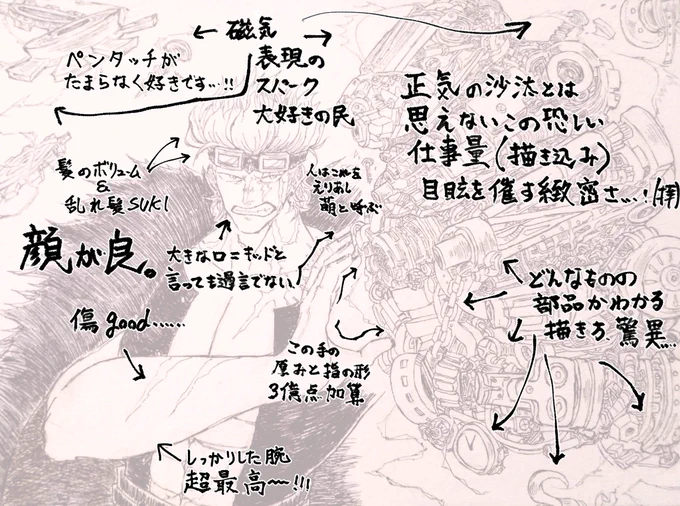 磁気
表現の
スパーク
大好きの民
ペンタッチが
たまらなく好きです…!!
正気の沙汰とは
思えないこの恐しい
仕事量(描き込み)
目眩を催す緻密さ…!
髪のボリューム
&
乱れ髪SUKI
人はこれを
えりあし
萌と呼ぶ
顔が良。
大きな口=キッドと
言っても過言でない
どんなものの
部品かわかる
描き方、驚異…
傷good……
この手の
厚みと指の形
3億点加算
しっかりした腕
超最高〜!!!